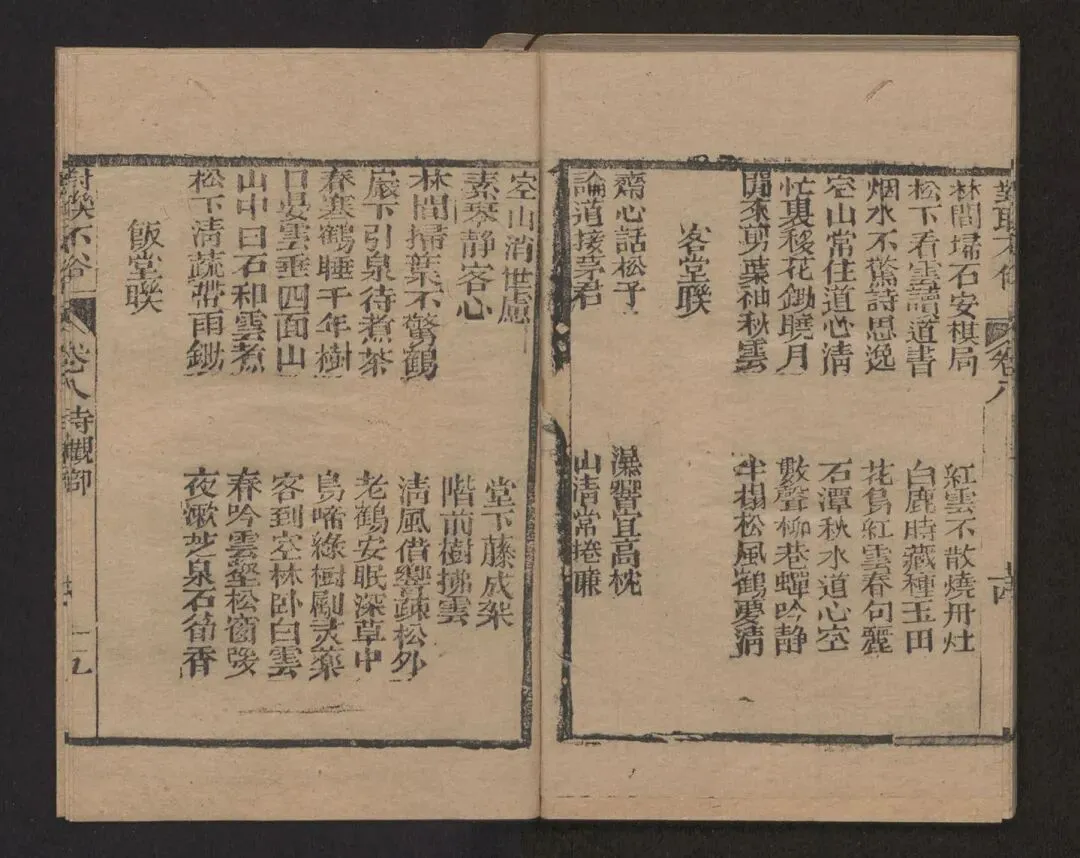 對聯不俗 卷八 十四
林間埽石安棋局 紅雲不散燒丹灶
松下看雲讀道書 白鹿時藏種玉田
烟水不驚詩思逸 花鳥紅雲春句麗
空山常住道心清 石潭秋水道心空
忙裏移花鋤曉月 數聲柳巷蟬吟静
閒來剪葉袖秋雲 半榻松風鶴夢清
客堂聯
齋心話松子 響宜高枕
論道接茅君 山清常捲簾
空山消世慮 堂下藤成架
素琴静客心 階前樹拂雲
林間掃葉不驚鶴 清風借響疎松外
巖下引泉待煮茶 老鶴安眠深草中
春寒鶴睡千年樹 鳥啼綠樹劚灵藥
日晏雲垂四面山 客到空林臥白雲
山中白石和雲煮 春吟雲壑松窗
松下清蔬帶雨鋤 夜漱芝泉石筍香
飯堂聯
對聯不俗 卷八 寺觀部 一九